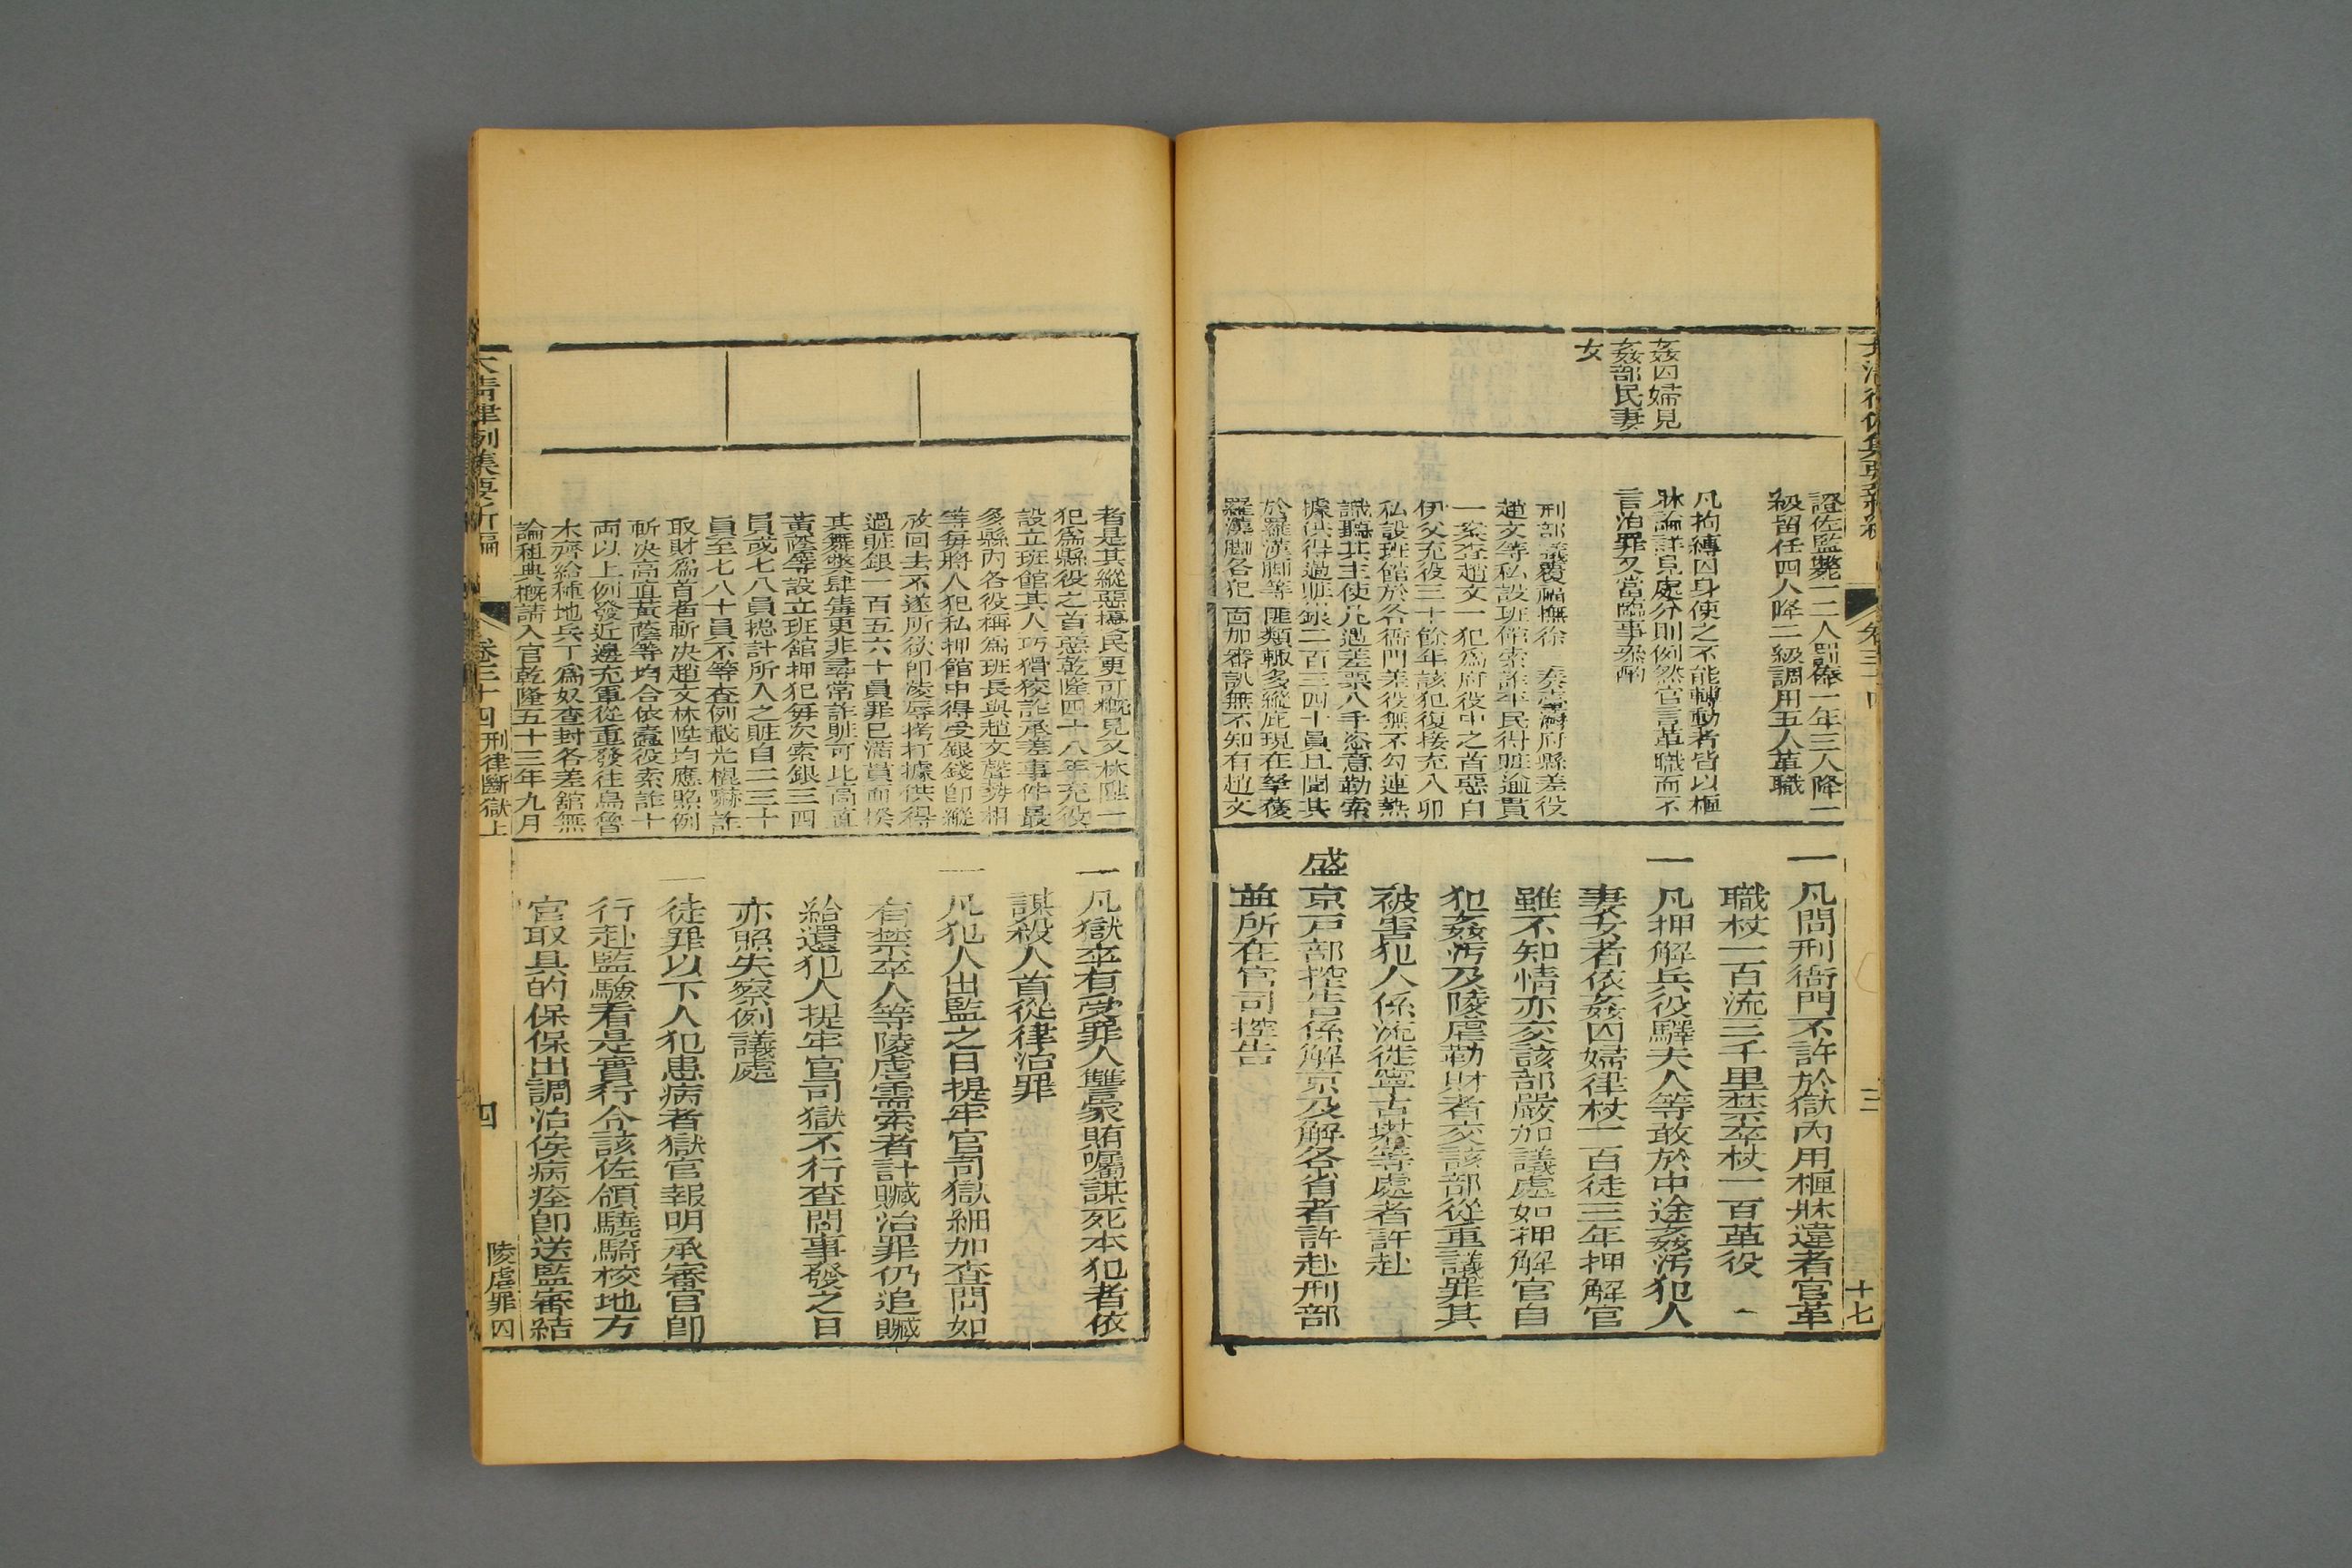 大清律例集要新編
卷三十四
三
十七
姦囚婦見
姦部民妻
女
證佐監斃一二人罰俸一年三人降一
級留任四人降二級調用五人革職
凡拘縛囚身使之不能轉動者皆以匣
牀論詳見處分則例然官言革職而不
言治罪又當臨事叅酌
刑部議覆福撫徐 奏臺灣府縣差役
趙文等私設班館索詐平民得贓逾貫
一案查趙文一犯為府役中之首惡自
伊父充役三十餘年該犯復接充八卯
私設班館於各衙門差役無不勾連熟
識聽其主使凡遇差票入手恣意勒索
據供得過贓銀二百三四十員且聞其
於羅漢脚等匪類輙多縱庇現在拏獲
羅漢脚各犯面加審訊無不知有趙文
一凡問刑衙門不許於獄內用匣牀違者官革
職杖一百流三千里禁卒杖一百革役
一凡押解兵役驛夫人等敢於中途姦汚犯人
妻女者依姦囚婦律杖一百徒三年押解官
雖不知情亦交該部嚴加議處如押解官自
犯姦汚及陵虐勒財者交該部從重議罪其
被害犯人係流徙寧古塔等處者許赴
盛京戶部控告係解京及解各省者許赴刑部
並所在官司控告
者是其縱惡擾民更可概見又林陞一
犯爲縣役之首惡乾隆四十八年充役
設立班館其人巧猾狡詐承差事件最
多縣內各役稱爲班長與趙文聲勢相
等每將人犯私押館中得受銀錢即縱
放回去不遂所欲即凌辱拷打據供得
過贓銀一百五六十員罪已滿貫而揆
其舞獘肆毒更非尋常詐贓可比高直
黃蔭等設立班館押犯每次索銀三四
員或七八員摠計所入之贓自二三十
員至七八十員不等查例載光棍嚇詐
取財爲首者斬决趙文林陞均應照例
斬决高直黃蔭等均合依蠹役索詐十
両以上例發近邊充軍從重發往烏魯
木齊給種地兵丁爲奴查封各差舘無
論租典概請入官乾隆五十三年九月
一凡獄卒有受罪人讐家賄囑謀死本犯者依
謀殺人首從律治罪
一凡犯人出監之日提牢官司獄細加查問如
有禁卒人等陵虐需索者計贓治罪仍追贓
給還犯人提牢官司獄不行查問事發之日
亦照失察例議處
一徒罪以下人犯患病者獄官報明承審官卽
行赴監驗看是實行令該佐領驍騎校地方
官取具的保保出調治俟病痊卽送監審結
大清律例集要新編
卷三十四刑律斷獄上
四
陵虐罪囚